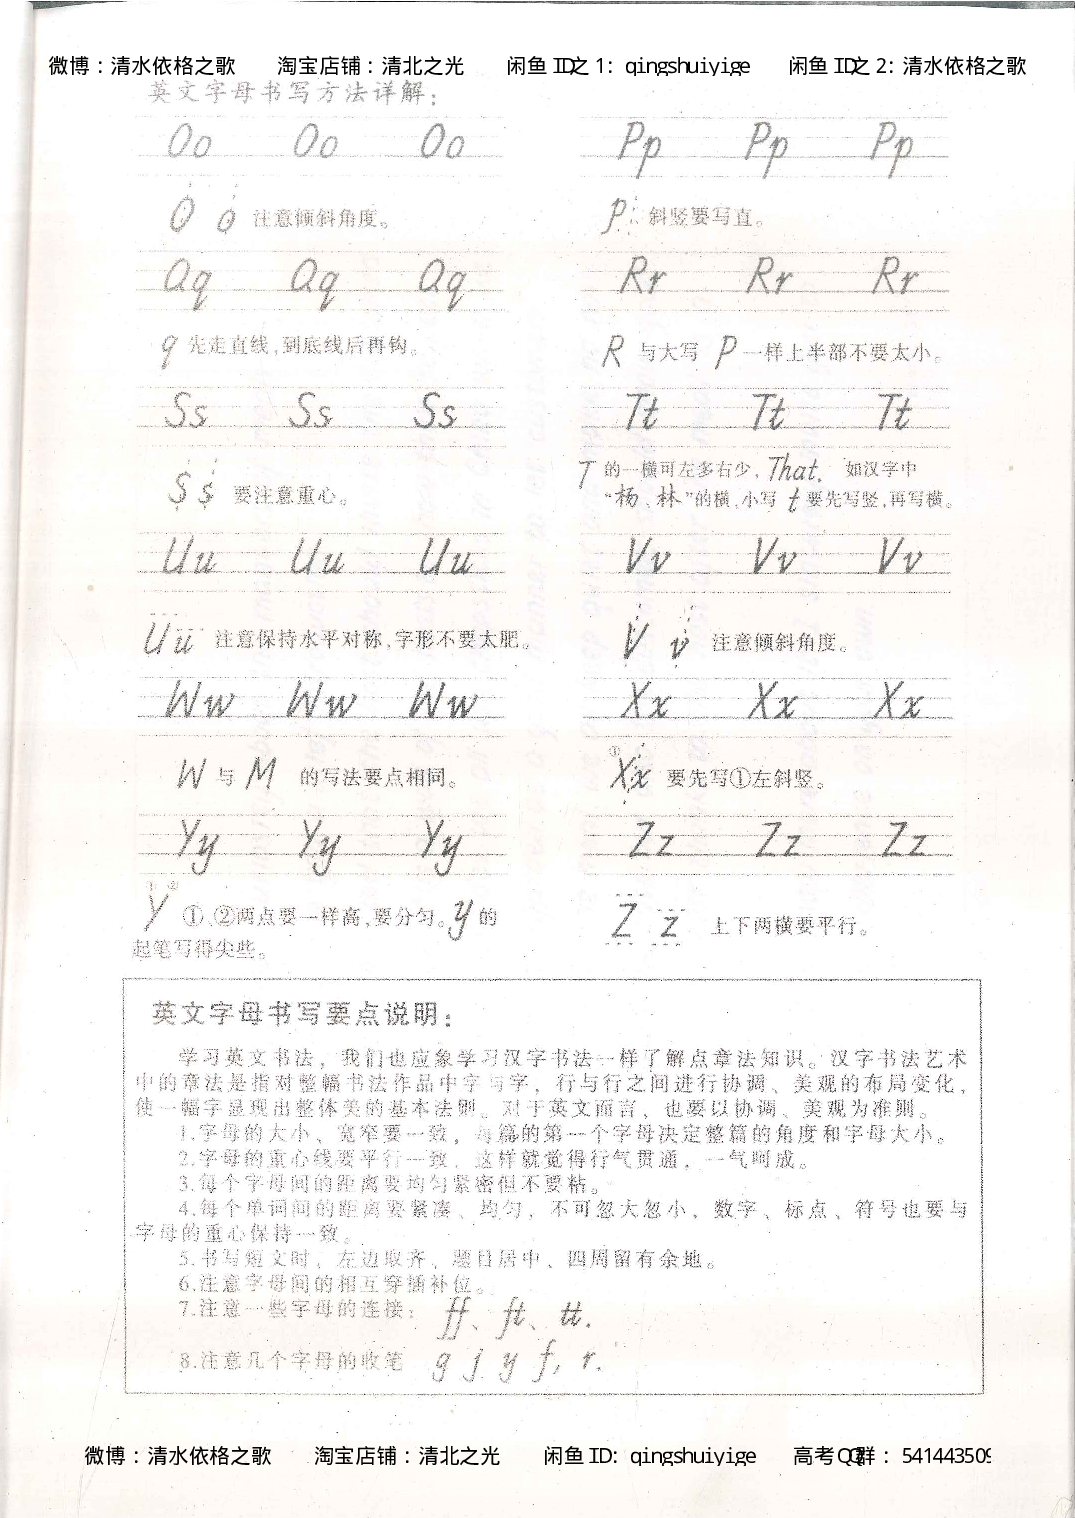 微博：清水依格之歌 淘宝店铺：清北之光 闲鱼 ID之 1: qingshuiyige 闲鱼 ID之 2: 清水依格之歌
英文字母书写方法详解：
Oo Oo Oo Pp Pp Pp
O o 注意倾斜角度。 p 斜竖要写直。
Qq Qq Qq Rr Rr Rr
q 先走直线,到底线后再钩。 R 与大写 P 一样上半部不要太小。
Ss Ss Ss Tt Tt Tt
S s 要注意重心。
T 的一横可左多右少, That. 如汉字中
“杨、林”的横,小写 t 要先写竖,再写横。
Uu Uu Uu Vv Vv Vv
Uu 注意保持水平对称,字形不要太肥。 V v 注意倾斜角度。
Ww Ww Ww Xx Xx Xx
W 与 M 的写法要点相同。 ① Xx 要先写①左斜竖。
Yy Yy Yy Zz Zz Zz
① ②
Y ①、②两点要一样高,要分匀。y 的
起笔写得尖些。
Z z 上下两横要平行。
英文字母书写要点说明：
学习英文书法，我们也应象学习汉字书法一样了解点章法知识。汉字书法艺术
中的章法是指对整幅书法作品中字与字，行与行之间进行协调、美观的布局变化，
使一幅字显现出整体美的基本法则。对于英文而言、也要以协调、美观为准则。
1.字母的大小、宽窄要一致，每篇的第一个字母决定整篇的角度和字母大小。
2.字母的重心线要平行一致，这样就觉得行气贯通，一气呵成。
3.每个字母间的距离要均匀紧密但不要粘。
4.每个单词间的距离要紧凑、均匀，不可忽大忽小，数字、标点、符号也要与
字母的重心保持一致。
5.书写短文时，左边取齐，题目居中、四周留有余地。
6.注意字母间的相互穿插补位。
7.注意一些字母的连接： ff、ft、tt.
8.注意几个字母的收笔 g j y f, r.
微博：清水依格之歌 淘宝店铺：清北之光 闲鱼 ID: qingshuiyige 高考QQ群： 541443509